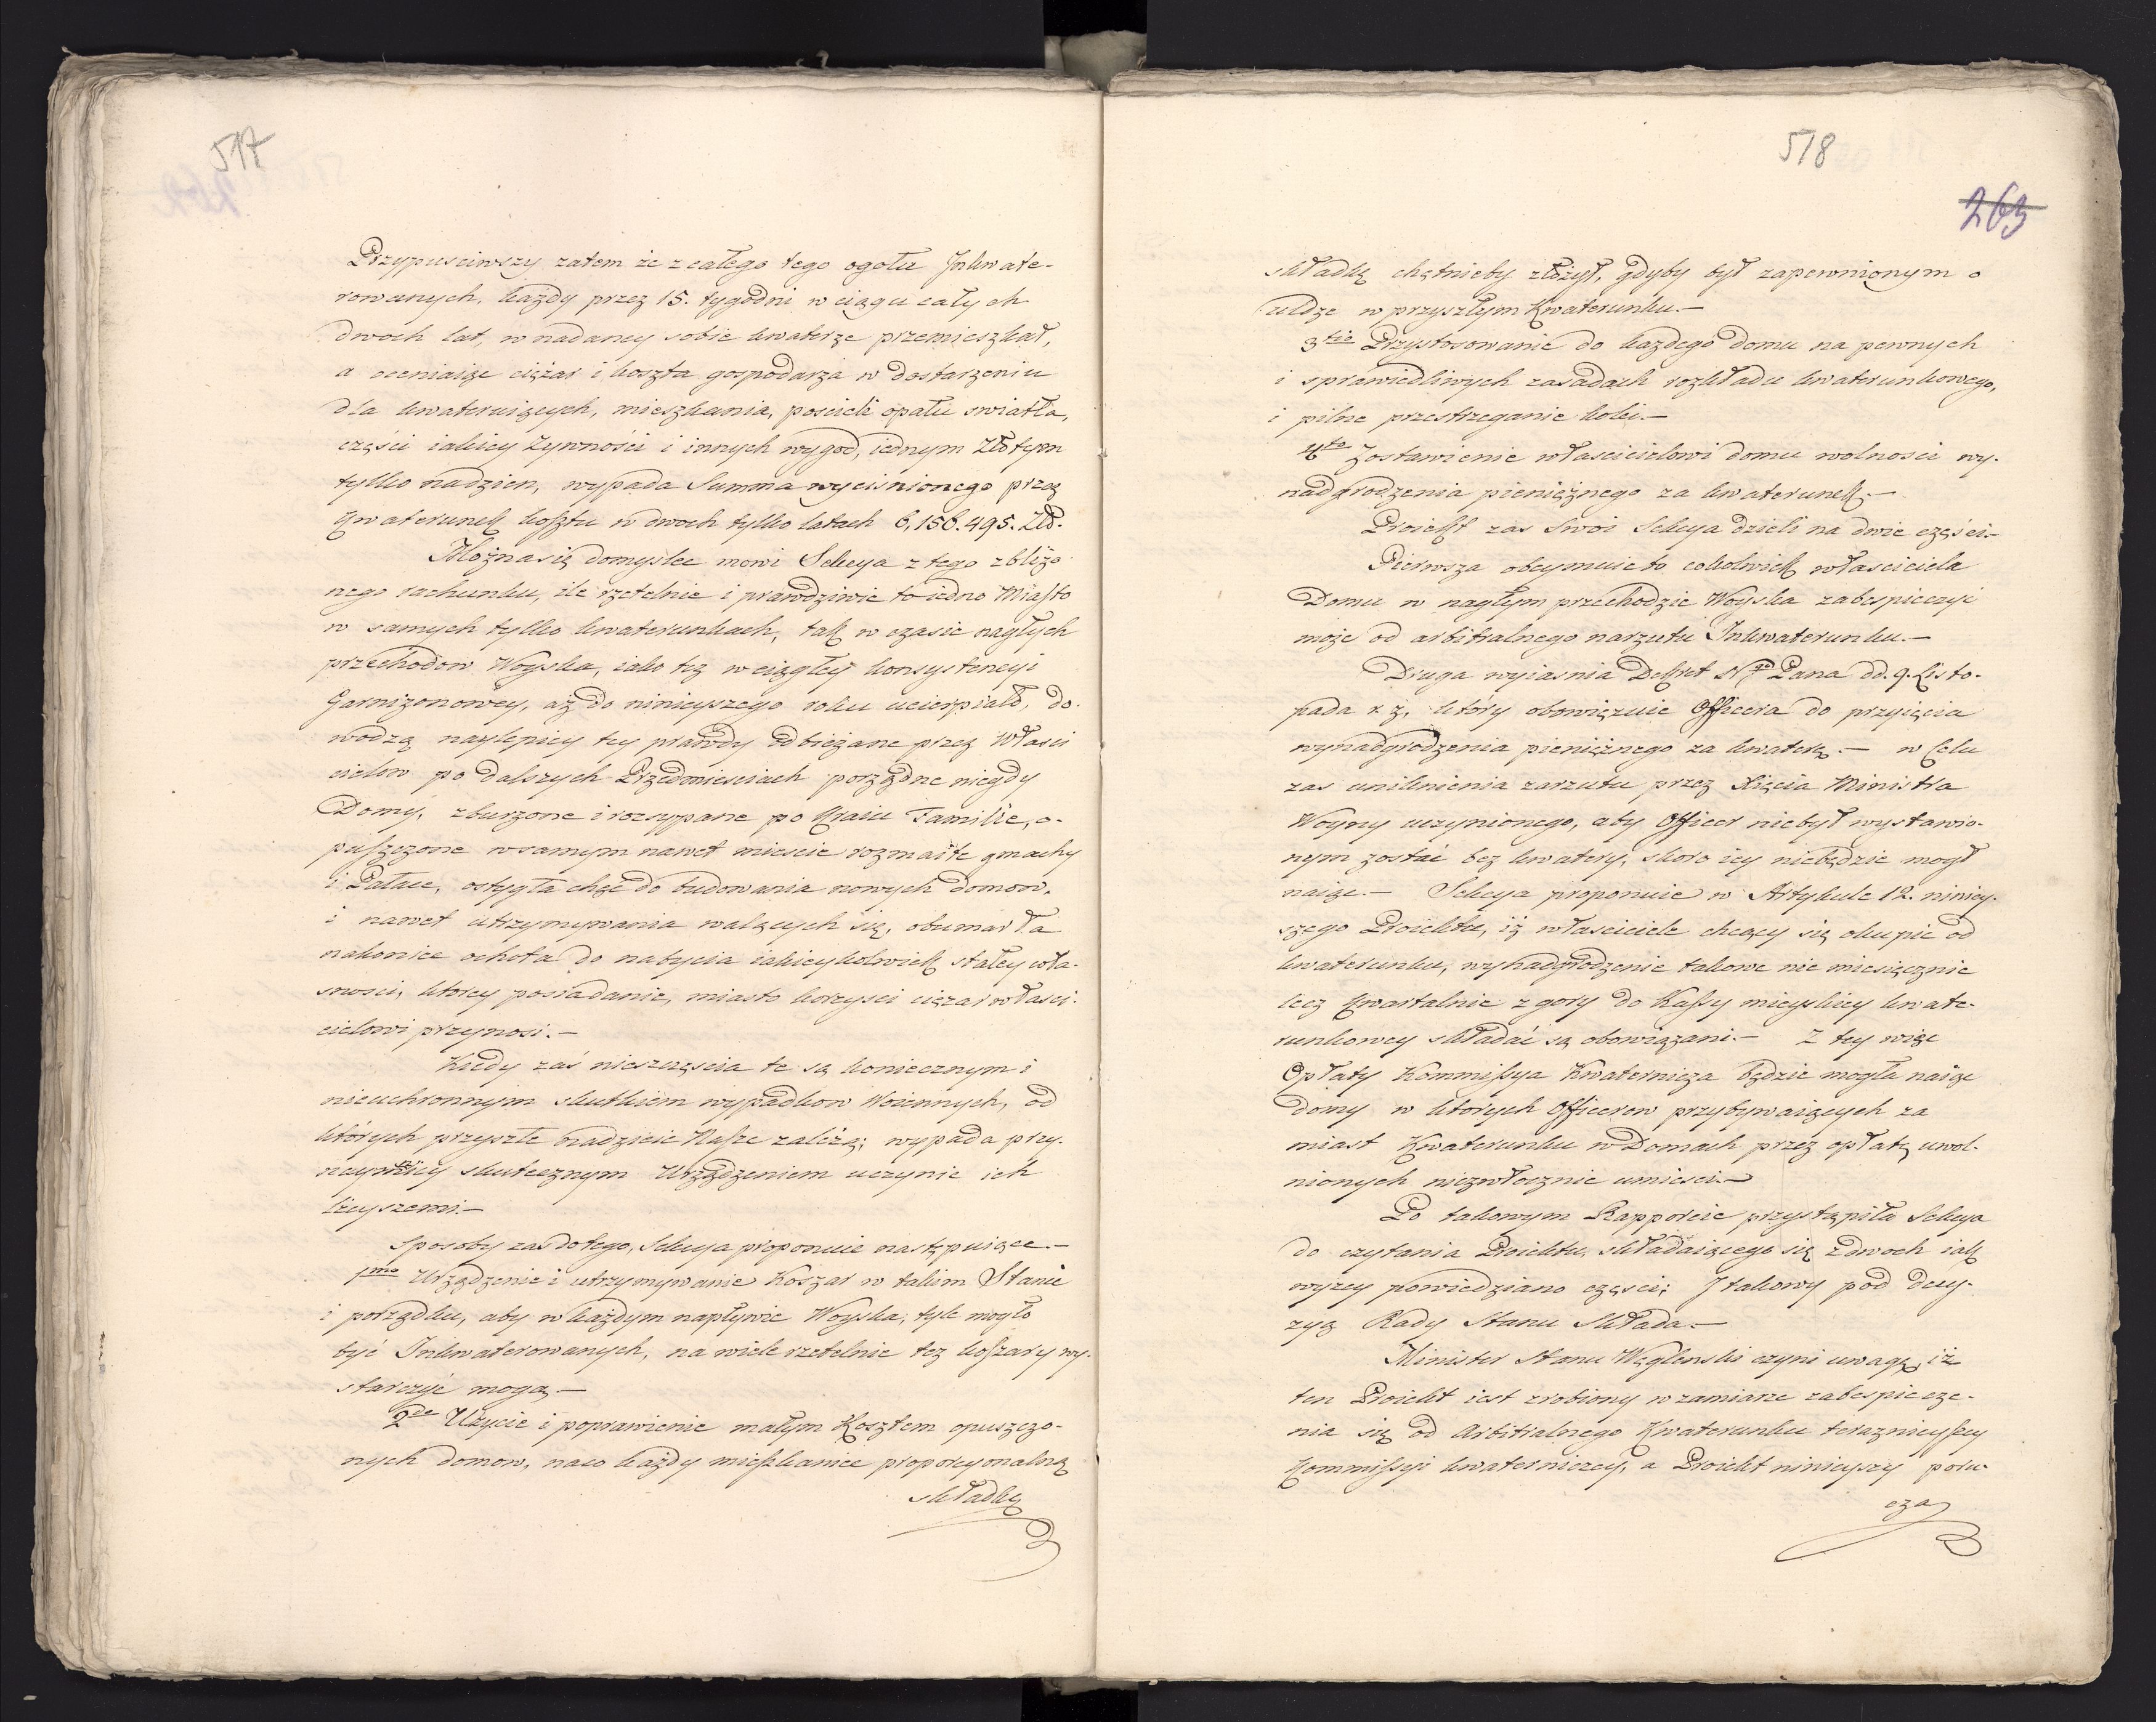 517
Przypusciwszy zatem że z całego tego ogołu Inkwate-
rowanych, każdy przez 15. tygodni w ciągu całych
dwoch lat, w nadaney sobie kwaterze przemieszkał,
a oceniaiąc ciężar i koszta gospodarza w dostarzeniu
dla kwateruiących, mieszkania, poscieli opału swiatła,
części iakiey żywności i innych wygod, iednym Złotym
tylko nadzien, wypada Summa wycisnionego przez
Kwaterunek kosztu w dwoch tylko latach 6,156.495. Złł.
Można się domyslec mowi Sekcya z tego zbliżo
nego rachunku, ile rzetelnie i prawdziwie to iedno Miasto
w samych tylko kwaterunkach, tak w czasie nagłych
przechodow Woyska, iako tez w ciągłey konsystencyi
Garnizonowey, aż do ninieyszego roku ucierpiało, do-
wodzą naylepiey tey prawdy odbieżane przez Własci
cielow po dalszych Przedmiesciach porządne niegdy
Domy, zburzone i rozsypane po Kraiu Familie, o-
puszczone w samym nawet miescie rozmaite gmachy
i Pałace, ostygła chęc do budowania nowych domow,
i nawet utrzymywania walących się, obumarła
nakoniec ochota do nabycia iakieykolwiek stałey wła-
snosci, ktorey posiadanie, miasto korzysci ciężar własci-
cielowi przynosi.-
Kiedy zaś nieszczęscia te są koniecznym i
nieuchronnym skutkiem wypadkow Woiennych, od
których przyszłe nadzieie Nasze zależą; wypada przy-
naymniey skutecznym Urządzeniem uczynic ich
lżeyszemi.-
Sposoby zas do tego, Sekcya proponuie następuiące.-
1mo Urządzenie i utrzymywanie Koszar w takim Stanie
i porządku, aby w każdym napływie Woyska, tyle mogło
być Inkwaterowanych, na wiele rzetelnie tez koszary wy-
starczyć mogą.-
2do Użycie i poprawienie małym Kosztem opuszczo-
nych domow, naco każdy mieszkaniec proporcyonalną
składkę
518
263
składkę chętnieby złożył, gdyby był zapewnionym o
uldze w przyszłym Kwaterunku.-
3tio Przystosowanie do każdego domu na pewnych
i sprawiedliwych zasadach rozkładu kwaterunkowego,
i pilne przestrzeganie kolei.-
4to Zostawienie włascicielowi domu wolnosci wy-
nadgrodzenia pieniężnego za kwaterunek.-
Proiekt zas Swoi Sekcya dzieli na dwie części.-
Pierwsza obeymuie to cokolwiek własciciela
Domu w nagłym przechodzie Woyska zabespieczyi
może od arbitralnego narzutu Inkwaterunku.-
Druga wyiasnia Dekret Ngo Pana dd. 9. Listo-
pada r. z. który obowiązuie Officera do przyięcia
wynadgrodzenia pieniężnego za kwaterę.- w Celu
zas uniknienia zarzutu przez Xięcia Ministra
Woyny uczynionego, aby Officer niebył wystawio-
nym zostać bez kwatery, skoro iey niebędzie mogł
naiąc.- Sekcya proponuie w Artykule 12. niniey-
szego Proiektu, iż własciciele chcący się okupic od
kwaterunku, wynadgrodzenie takowe nie miesięcznie
lecz Kwartalnie z gory do Kassy mieyskiey kwate-
runkowey składać są obowiązani.- Z tey więc
Opłaty Kommissya Kwaternicza będzie mogła naiąc
domy w których Officerow przybywaiących za
miast Kwaterunku w Domach przez opłatę uwol-
nionych niezwłocznie umiesci.-
Po takowym Rapporcie przystąpiła Sekcya
do czytania Proiektu, składaiącego się z dwoch iak
wyzey powiedziano częsci; I takowy pod decy-
zyą Rady Stanu Składa.-
Minister Stanu Węglenski czyni uwagę, iż
ten Proiekt iest zrobiony w zamiarze zabespiecze-
nia się od Arbitralnego Kwaterunku teraznieyszey
Kommissyi kwaterniczey, a Proiekt ninieyszy poru-
cza